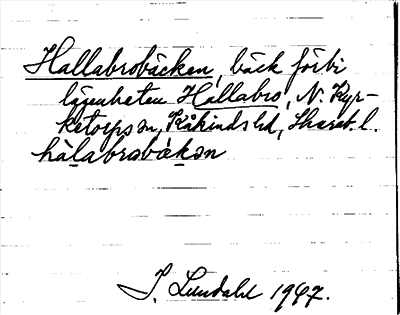 Hallabrobäcken, bäck förbi
lägenheten Hallabro, N. Kyr-
ketorps sn, Kåkinds hd, Skarab. l.
hàlabrobǽkən
I. Lundahl 1947.